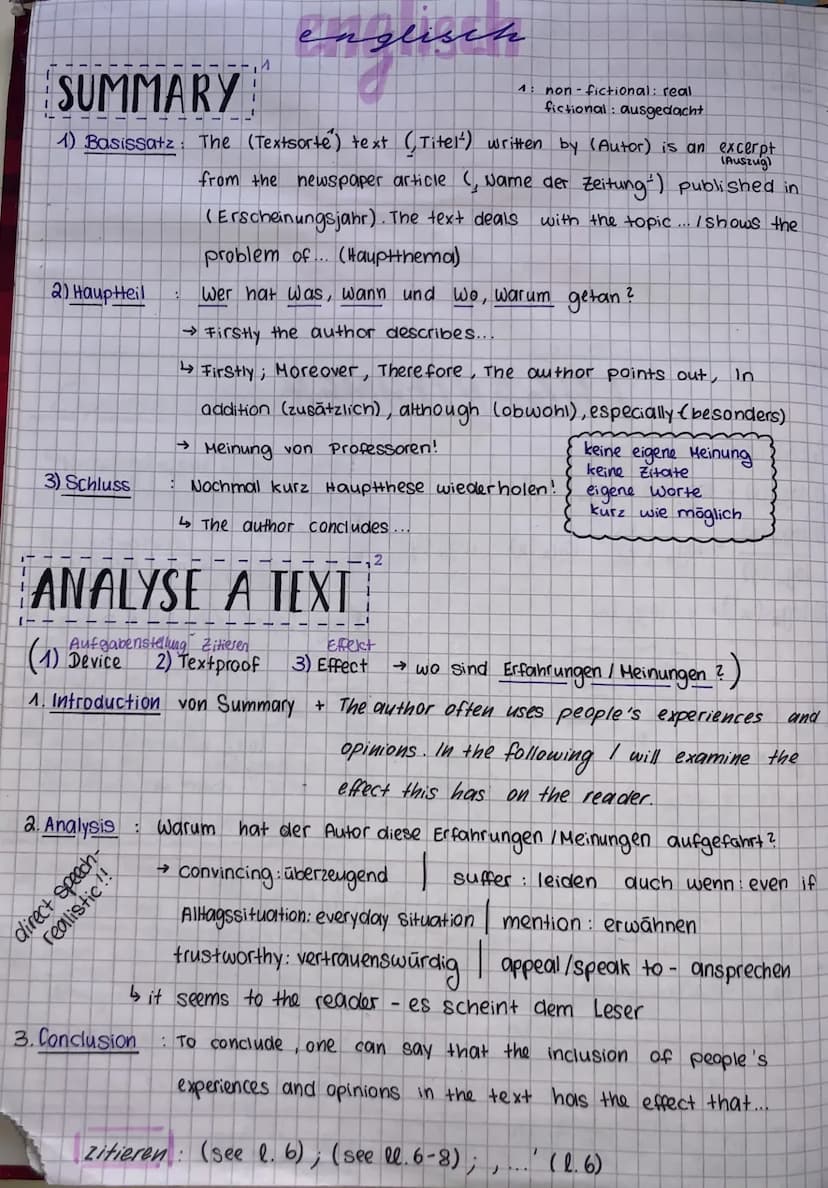 englisch
SUMMARY 1
1: non-fictional: real
fictional: ausgedacht
1) Basissatz: The (Textsorte1) text (‚Titel') written by (Autor) is an excerpt
(Auszug)
from the newspaper article (‚Name der Zeitung') published in
(Erscheinungsjahr). The text deals with the topic ... / shows the
problem of... (Hauptthema)
2) Hauptteil : Wer hat Was, Wann und Wo, Warum getan?
→ Firstly the author describes...
↳ Firstly; Moreover, Therefore, The author points out, In
addition (zusätzlich), although (obwohl), especially (besonders)
→ Meinung von Professoren!
keine eigene Meinung
keine Zitate
eigene Worte
kurz wie möglich
3) Schluss : Nochmal kurz Hauptthese wiederholen!
↳ The author concludes...
ANALYSE A TEXT 2
Aufgabenstellung Zitieren Effekt
(1) Device 2) Textproof 3) Effect → wo sind Erfahrungen / Meinungen?)
1. Introduction von Summary + The author often uses people's experiences and
opinions. In the following I will examine the
effect this has on the reader.
2. Analysis : Warum hat der Autor diese Erfahrungen / Meinungen aufgefahrt?
direct speech-
realistic!!
→ convincing: überzeugend | suffer: leiden auch wenn: even if
Alltagssituation: everyday situation | mention: erwähnen
trustworthy: vertrauenswürdig | appeal/speak to - ansprechen
↳ it seems to the reader - es scheint dem Leser
3. Conclusion : To conclude, one can say that the inclusion of people's
experiences and opinions in the text has the effect that...
zitieren: (see l. 6); (see ll. 6-8); ‚...' (l. 6)